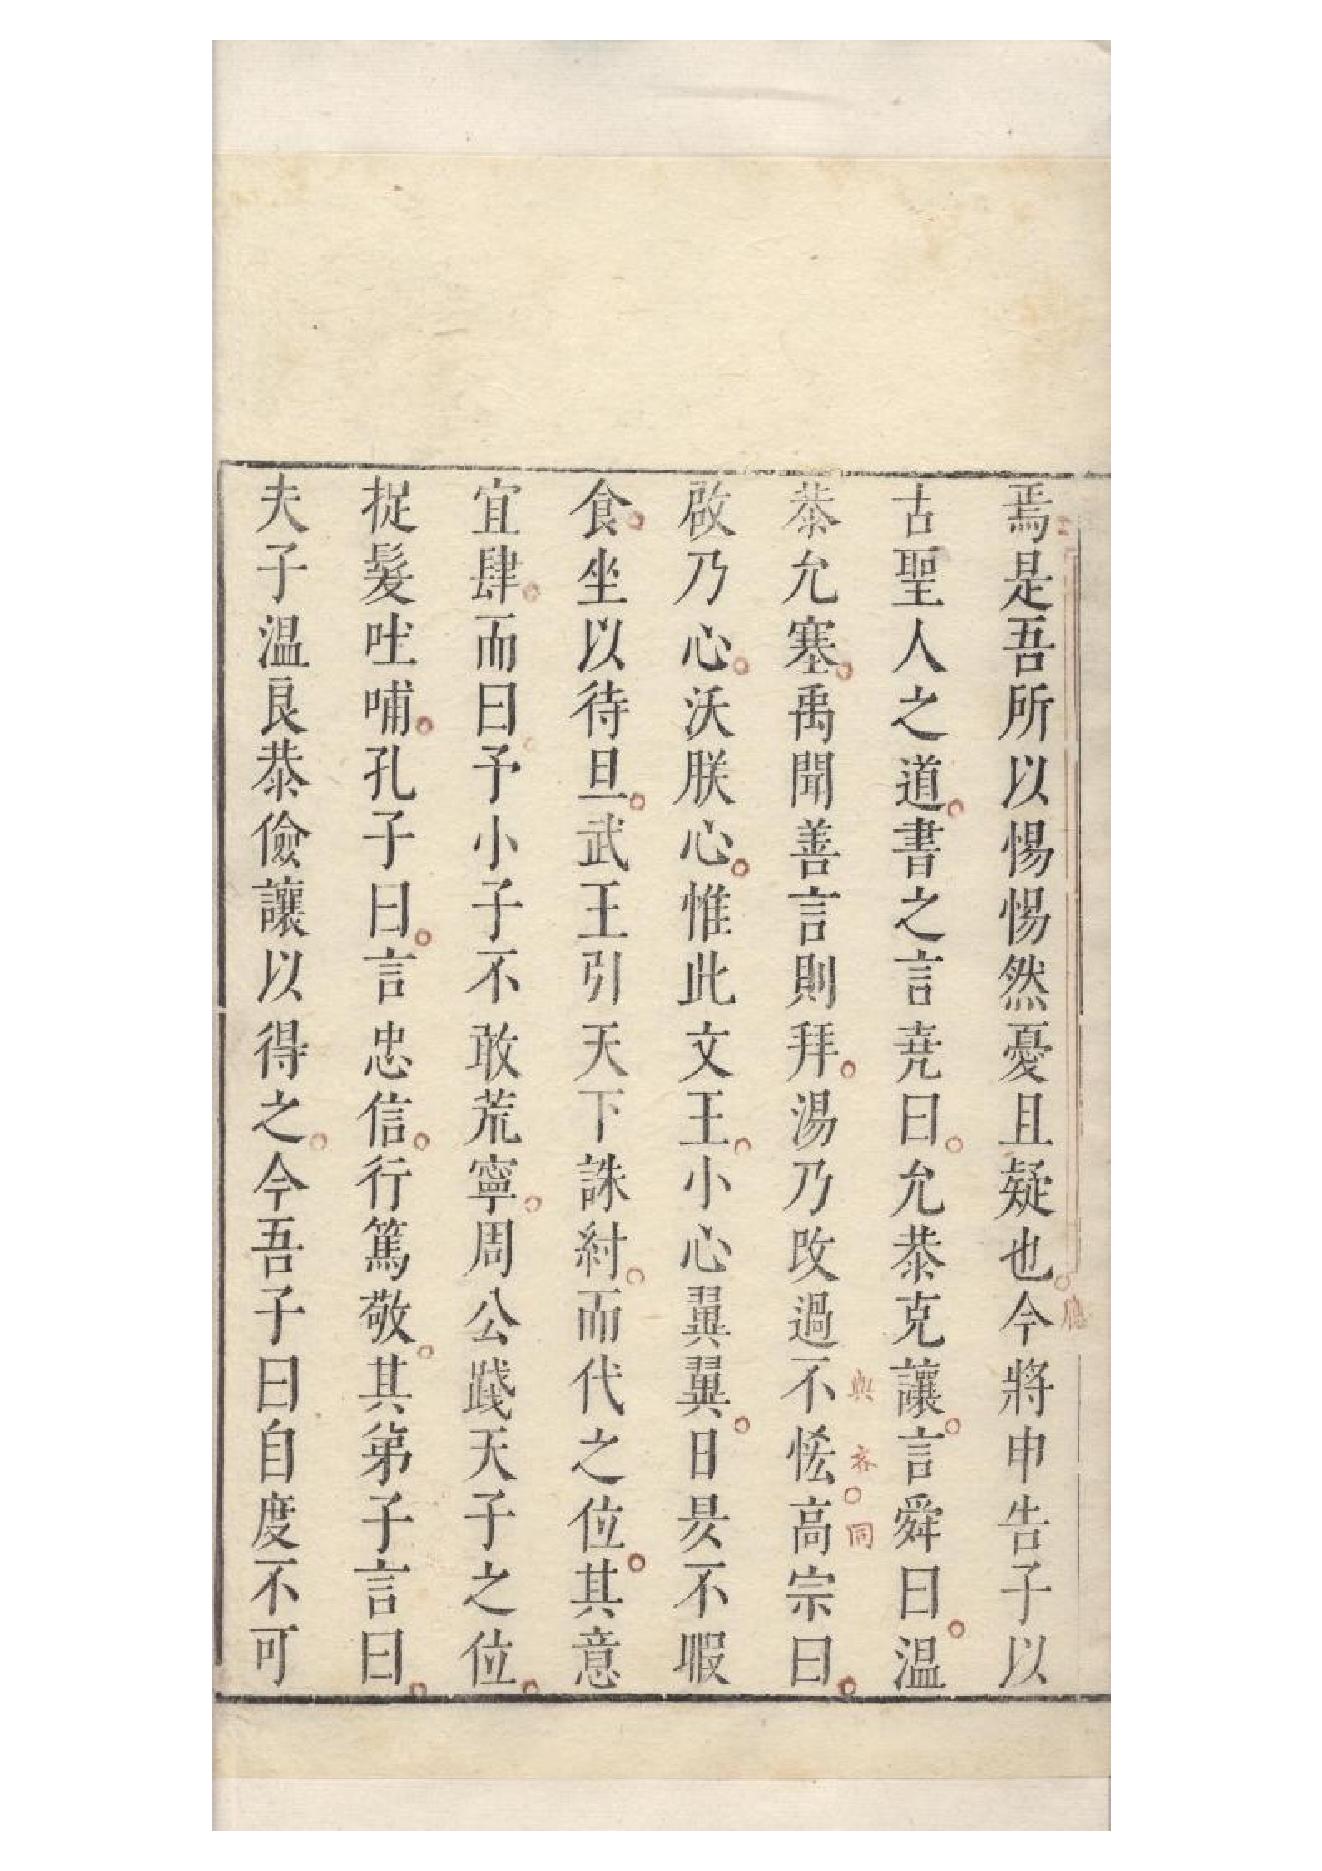 焉是吾所以惕惕然憂且疑也今將申告子以
古聖人之道書之言堯曰允恭克讓言舜曰溫
恭允塞禹聞善言則拜湯乃改過不恡高宗曰
與吝同
啟乃心沃朕心惟此文王小心翼翼日昃不暇
食坐以待旦武王引天下誅紂而代之位其意
宜肆而曰予小子不敢荒寧周公踐天子之位
捉髮吐哺孔子曰言忠信行篤敬其弟子言曰
夫子溫良恭儉讓以得之今吾子曰自度不可